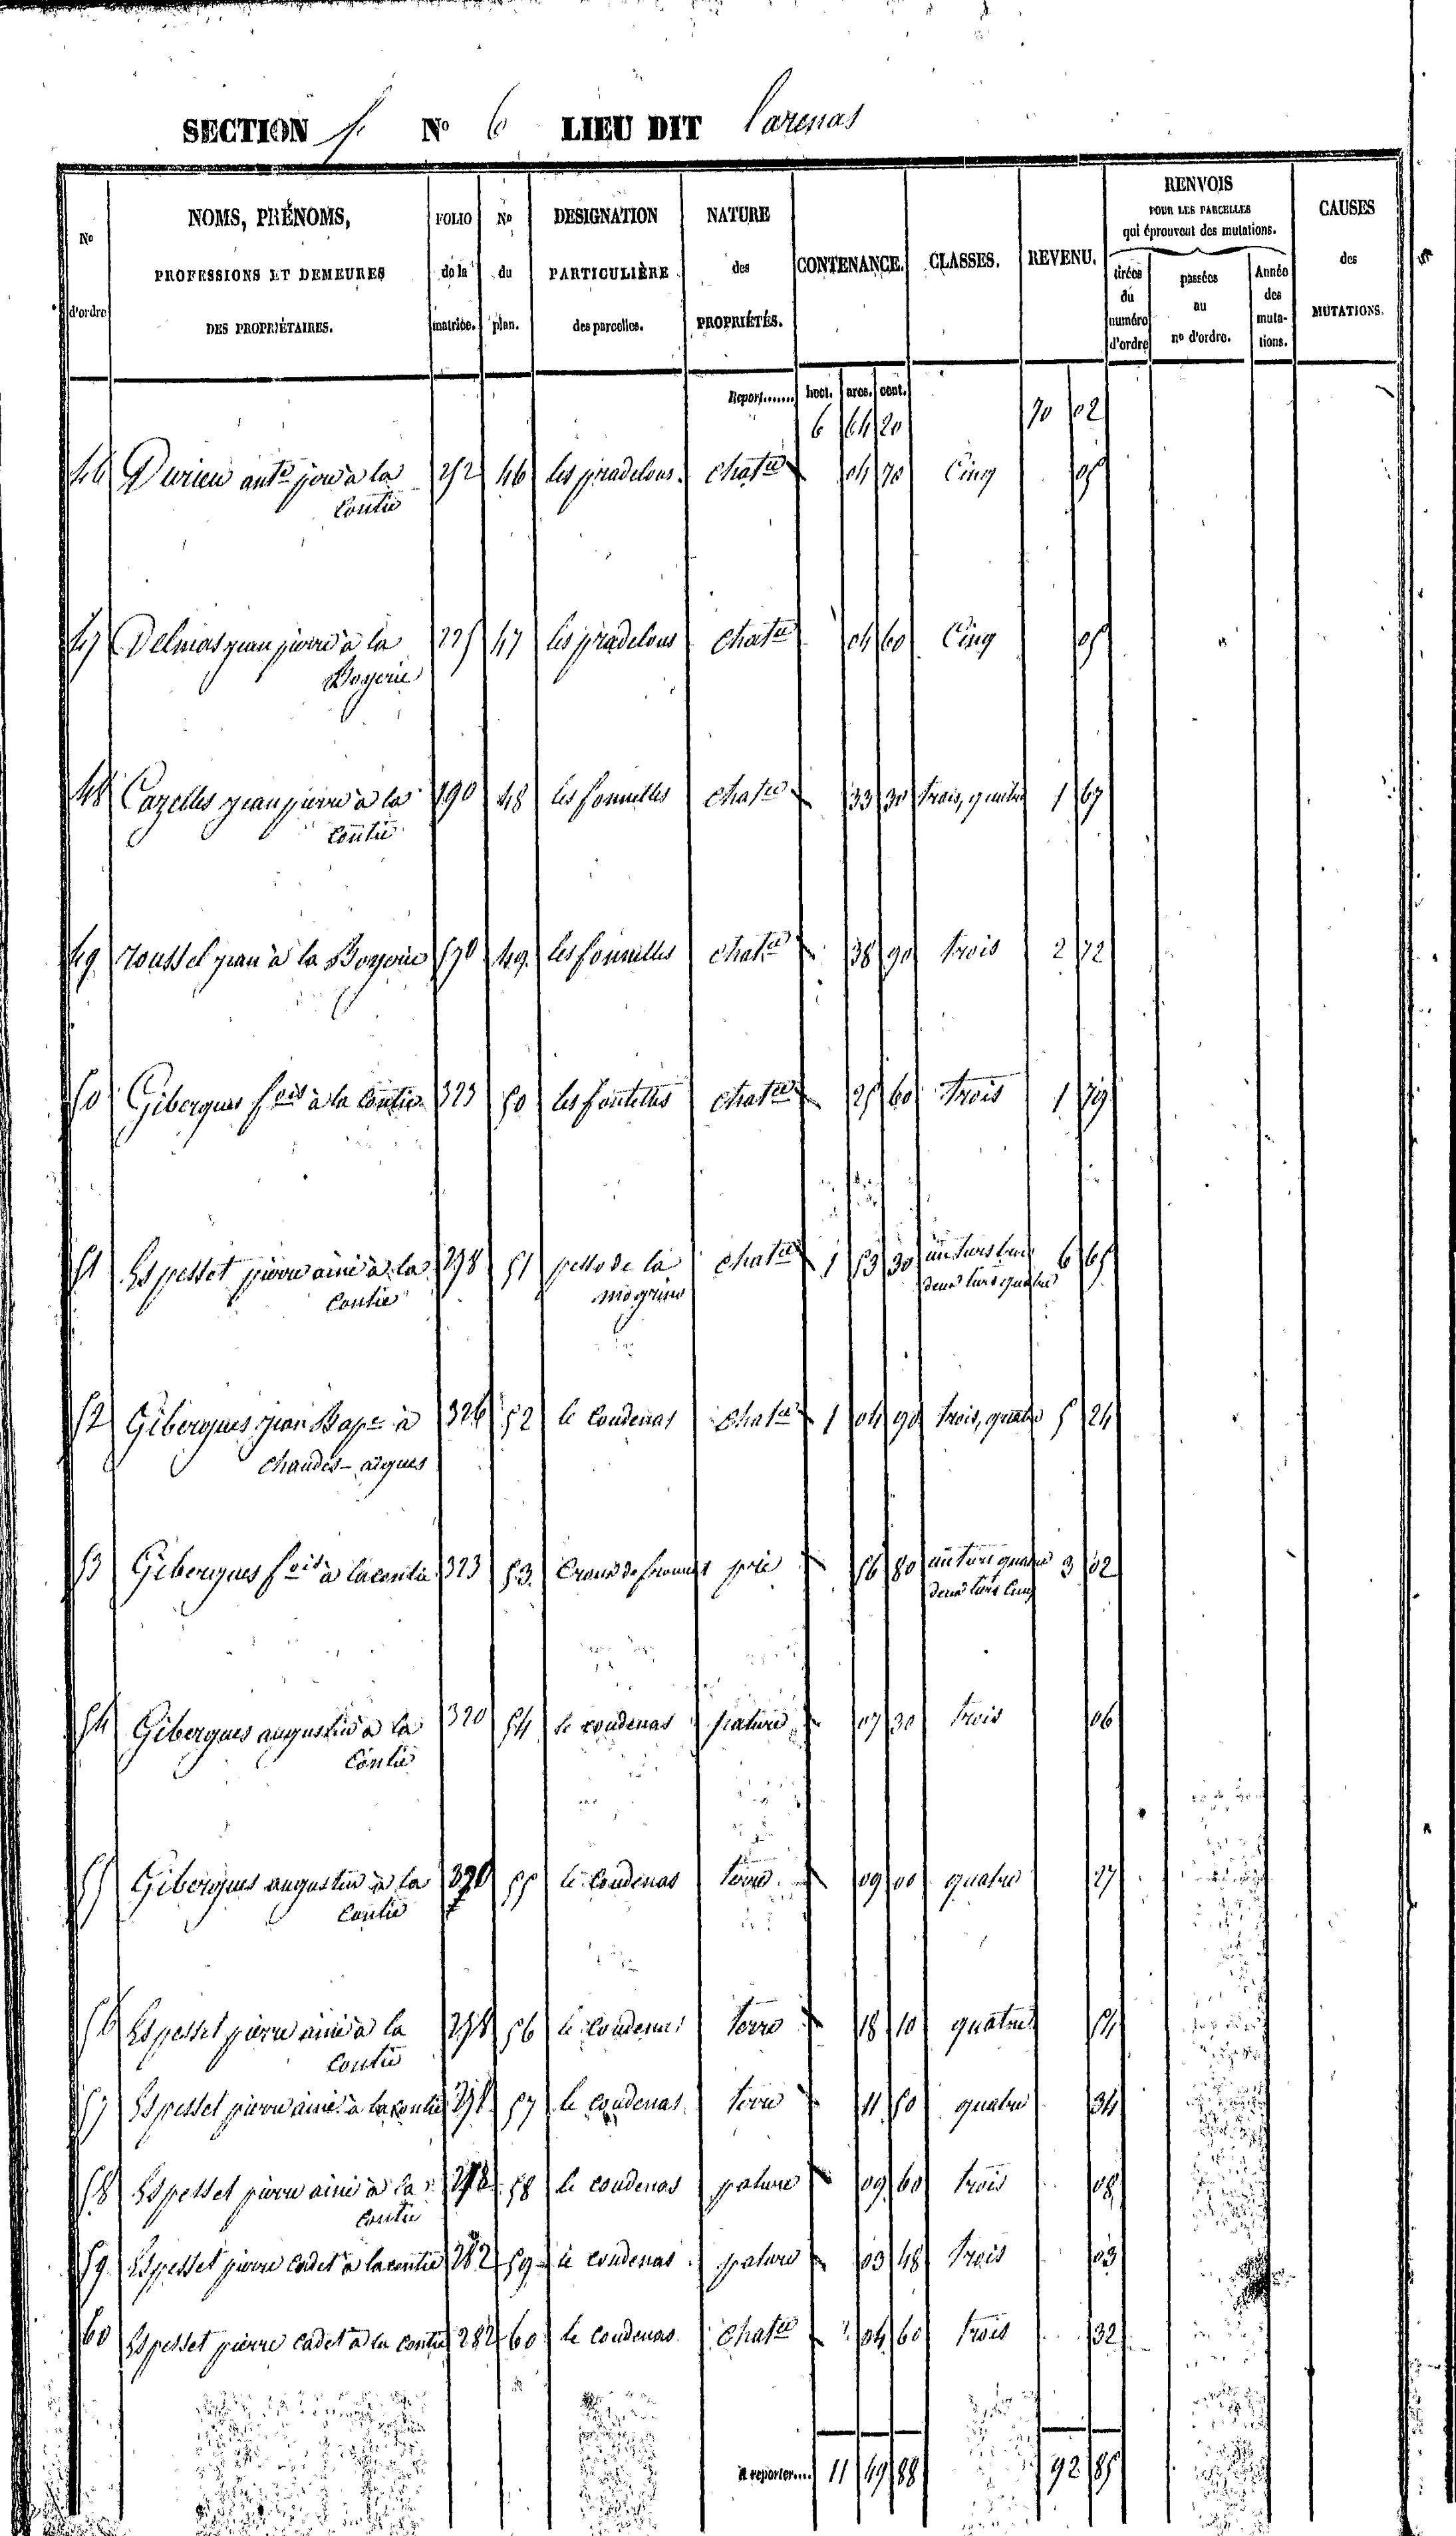 SECTION f. No 6 LIEU DIT Carenas
No d'ordre
NOMS, PRÉNOMS, PROFESSIONS ET DEMEURES DES PROPRIÉTAIRES.
FOLIO de la matrice.
No du plan.
DESIGNATION PARTICULIÈRE des parcelles.
NATURE des PROPRIÉTÉS.
CONTENANCE.
CLASSES.
REVENU.
RENVOIS POUR LES PARCELLES qui éprouvent des mutations.
tirées du numéro d'ordre
passées au no d'ordre.
Année des mutations.
CAUSES des MUTATIONS.
Report....... hect. ares. cent.
6 64 20 70 02
46 Durieu ante jou à la 252 46 les pradelous. chatie 04 70 Cinq 05
Contie
47 Delmas jean pierre à la 225 47 les pradelous chatie 04 60 Cinq 05
Boyerie
48 Cazelles jean pierre à la 190 48 les fonnelles chatie 33 30 trois, quatre 1 67
Contie
49 roussel jean à la Boyerie 570 49 les fonnelles chatie 38 90 trois 2 72
50 Gibergues fois à la Contie 323 50 les fontelles chatie 25 60 trois 1 79
51 Espesset pierre ainé à la 298 51 pesso de la chatie 1 53 30 un tiers trois 6 65
Contie deux tiers quatre
52 Gibergues jean Bape à 326 52 le Coudenas chatie 1 04 90 trois, quatre 5 24
chaudes-aigues
53 Gibergues fois à la contie 323 53 pré 56 80 un tiers quatre 3 02
deux tiers Cinq
54 Gibergues augustin à la 320 54 le coudenas pature 07 30 trois 06
Contie
55 Gibergues augustin à la 320 55 le Coudenas terre 09 00 quatre 27
Contie
56 Espesset pierre ainé à la 298 56 le coudenas terre 18 10 quatre 54
Contie
57 Espesset pierre ainé à la contie 298 57 le coudenas terre 11 50 quatre 34
58 Espesset pierre ainé à la 298 58 le coudenas pature 09 60 trois 08
Contie
59 Espesset pierre cadet à la contie 282 59 le coudenas pature 03 48 trois 03
60 Espesset pierre cadet à la contie 282 60 le coudenas chatie 04 60 trois 32
A reporter.... 11 49 88 92 85